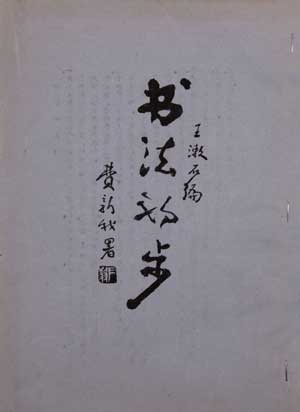 王漱石编
书法初步
费新我署